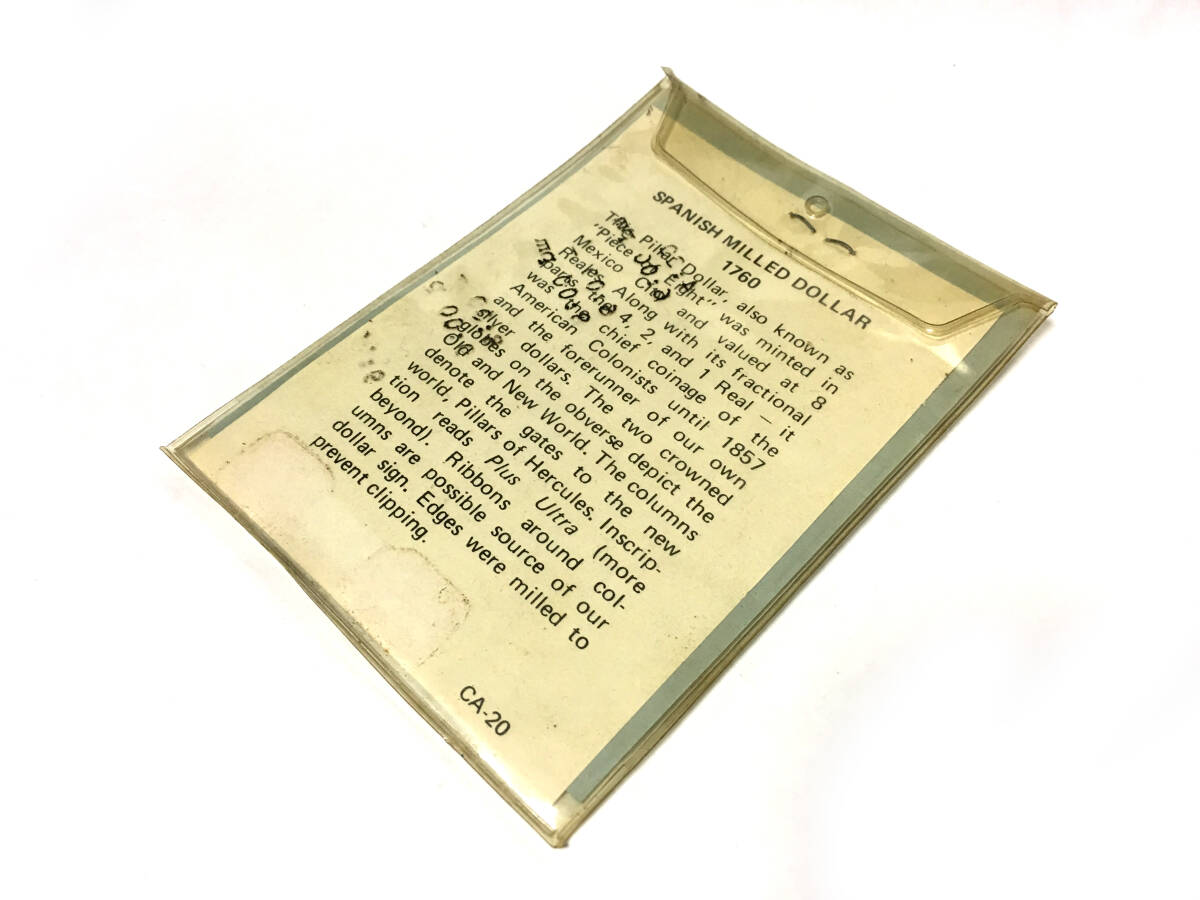 SPANISH MILLED DOLLAR
1760
The Pillar Dollar, also known as
"Piece of Eight" was minted in
Mexico City and valued at 8
Reales. Along with its fractional
parts, the 4, 2, and 1 Real — it
was the chief coinage of the
American Colonists until 1857
and the forerunner of our own
silver dollars. The two crowned
globes on the obverse depict the
Old and New World. The columns
denote the gates to the new
world, Pillars of Hercules. Inscrip-
tion reads Plus Ultra (more
beyond). Ribbons around col-
umns are possible source of our
dollar sign. Edges were milled to
prevent clipping.
CA-20